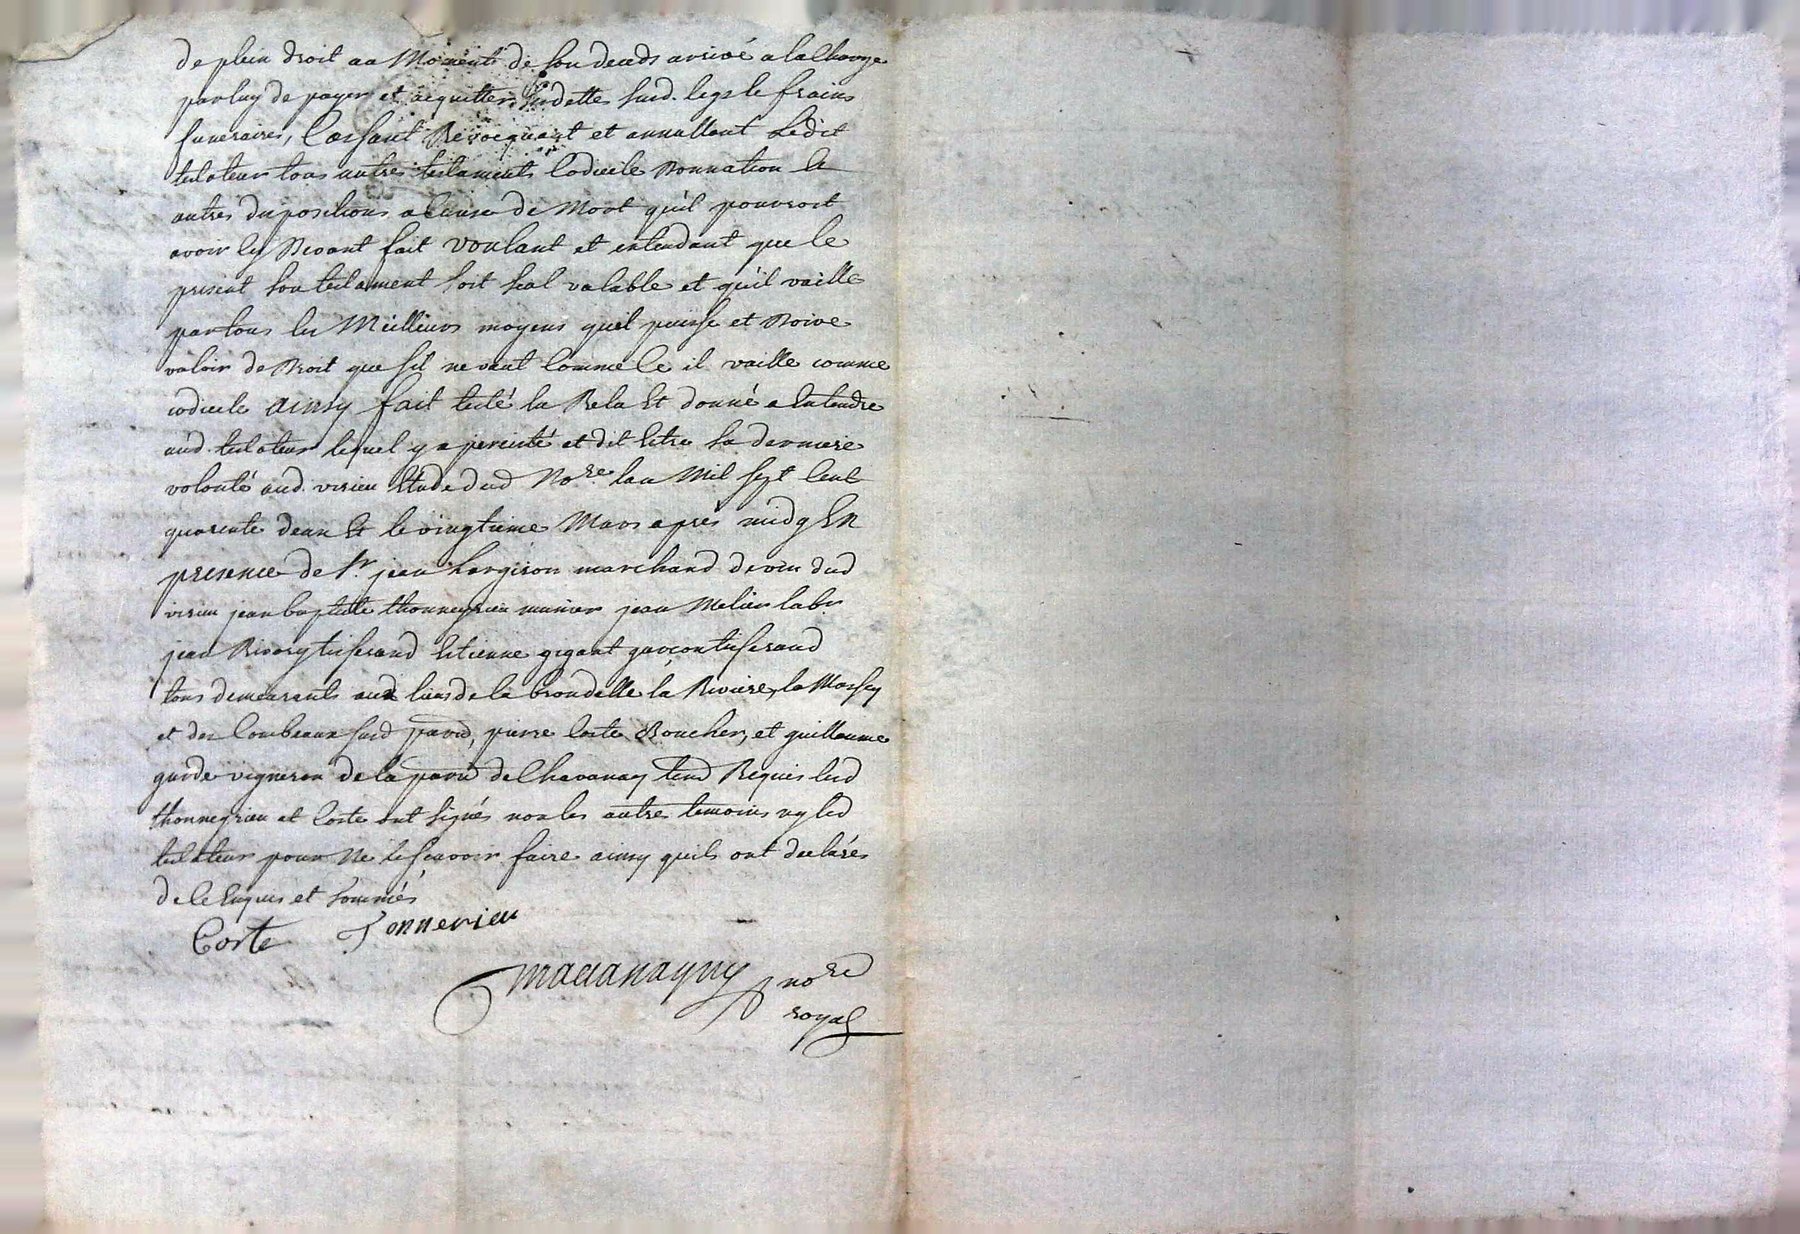 de plein droit au Moment de son deceds arrivé a la Charge
par luy de payer et acquitter ses dettes susd. legs le fraits
funeraires, Cassant Revocquant et annullant Ledit
testateur tous autres testaments Codicile Donnation et
autres dispositions a Cause de Mort qu'il pouvroit
avoir cy Devant fait voulant et entendant que le
present son testament soit seal valable et qu'il vaille
par tous les Meillieurs moyens quil puisse et Doive
valoir de Droit que s'il ne vaut Comme Ce il vaille comme
codicile ainsy fait testé la Rela et donné a Entendre
aud. testateur lequel y a percisté et dit Estre sa derniere
volonté aud. virieu Etude dud Nore. lan Mil sept Cent
quarente deux Et le vingtieme Mars apres midy En
presence de Sr. jean marchand dud
virieu jean baptiste thonnegrieu munier jean Melier labr
jean Rivory tisserand Estienne gigant garcon tisserand
tous demeurants aux lieux de la brondelle la Riviere, la
et des Combeaux susd parod, pierre Corte Boucher, et guillaume
garde vigneron de la parod de Chavanay temd Requis lesd
thonnegrieu et Corte ont signés non les autres temoins ny led
testateur pour Ne le scavoir faire ainsy quils ont declarés
de ce Enquis et Sommés
Corte Tonnerieu
nore
royal